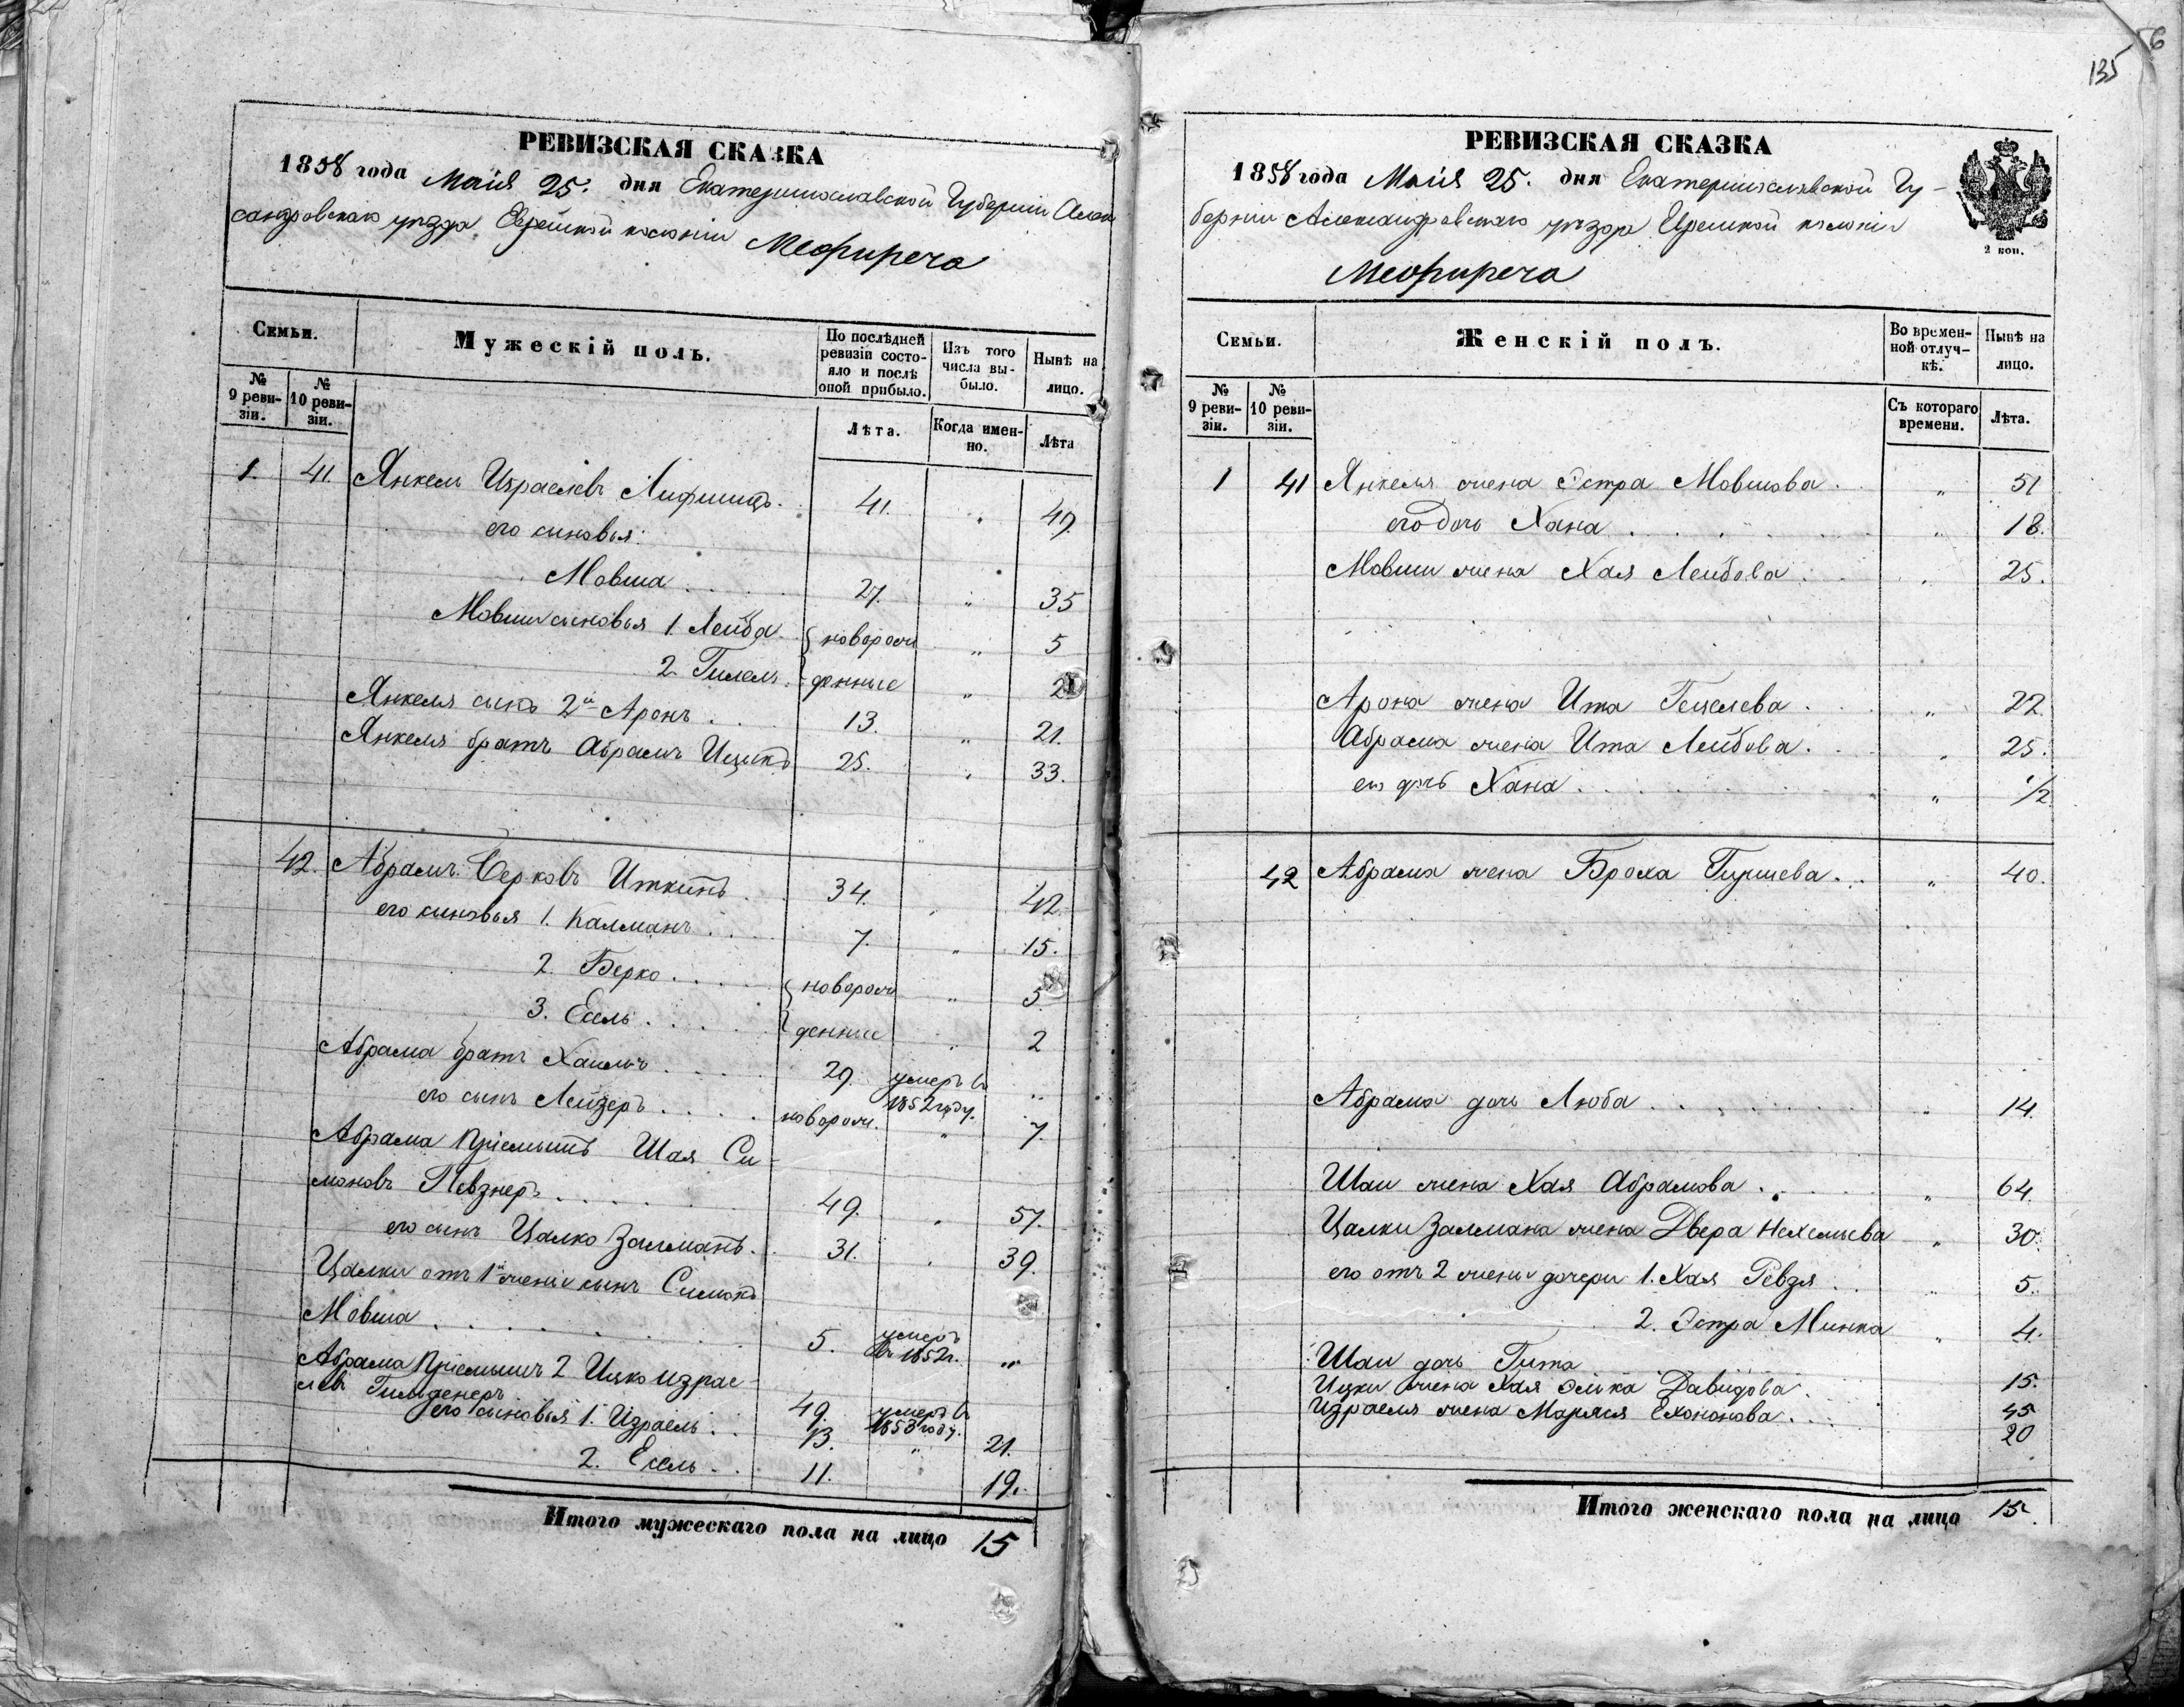 РЕВИЗСКАЯ СКАЗКА
1858 года Маія 25. дня Екатеринославской Губерніи Алек
сандровскаго уѣзда Еврейской колоніи Межиречо
Семьи.
Мужескій полъ.
По послѣдней ревизіи состояло и послѣ оной прибыло.
Изъ того числа выбыло.
Нынѣ на лицо.
№ 9 ревизіи.
№ 10 ревизіи.
Лѣта.
Когда именно.
Лѣта
1. 41. Янкель Израелевъ Лифшицъ. 41. 49.
его сыновья:
Мовша 27. " 35
Мовши сыновья 1. Лейба { новорож " 5
2. Гилель. денные " 2
Янкеля сынъ 2й Аронъ 13. " 21.
Янкеля братъ Абрамъ Ицикъ 25. " 33.
42. Абрамъ Берковъ Иткинъ 34. " 42.
его сыновья 1. Калманъ 7. " 15.
2. Берко { новорож " 5
3. Ессель денные " 2
Абрама братъ Хаимъ 29. умеръ въ 1852 году. "
его сынъ Лейзеръ новорож. " 7.
Абрама пріемышъ Шая Си-
моновъ Певзнеръ 49. " 57.
его сынъ Цалко Залманъ. 31. " 39.
Цалки отъ 1й жени сынъ Симонъ
Мовша 5. умеръ въ 1852 г. "
Абрама пріемышъ 2 Ицко Израе-
левъ Гильденеръ 49. умеръ въ 1853 году.
его сыновья 1. Израель 13. " 21.
2. Ессель 11. 19.
Итого мужескаго пола на лицо 15
135
6
РЕВИЗСКАЯ СКАЗКА
1858 года Маія 25. дня Екатеринославской Гу-
берніи Александровскаго уѣзда Еврейской колоніи
Межиречо
2 коп.
Семьи.
Женскій полъ.
Во временной отлучкѣ.
Нынѣ на лицо.
№ 9 ревизіи.
№ 10 ревизіи.
Съ котораго времени.
Лѣта.
1 41 Янкеля жена Эстра Мовшова. " 51
его дочь Хана " 18.
Мовши жена Хая Лейбова " 25.
Арона жена Ита Гецелева " 22.
Абрама жена Ита Лейбова. " 25.
его дочь Хана " 1/2
42 Абрама жена Броха Гиршева. " 40.
Абрама дочь Люба " 14.
Шаи жена Хая Абрамова " 64.
Цалки Залмана жена Двера Нехемьева " 30.
его отъ 2 жени дочери 1. Хая Ревзя " 5.
2. Эстра Минка " 4.
Шаи дочь Гита 15.
Ицки жена Хая Элька Давидова 45
Израеля жена Маряся Ехононова 20
Итого женскаго пола на лицо 15